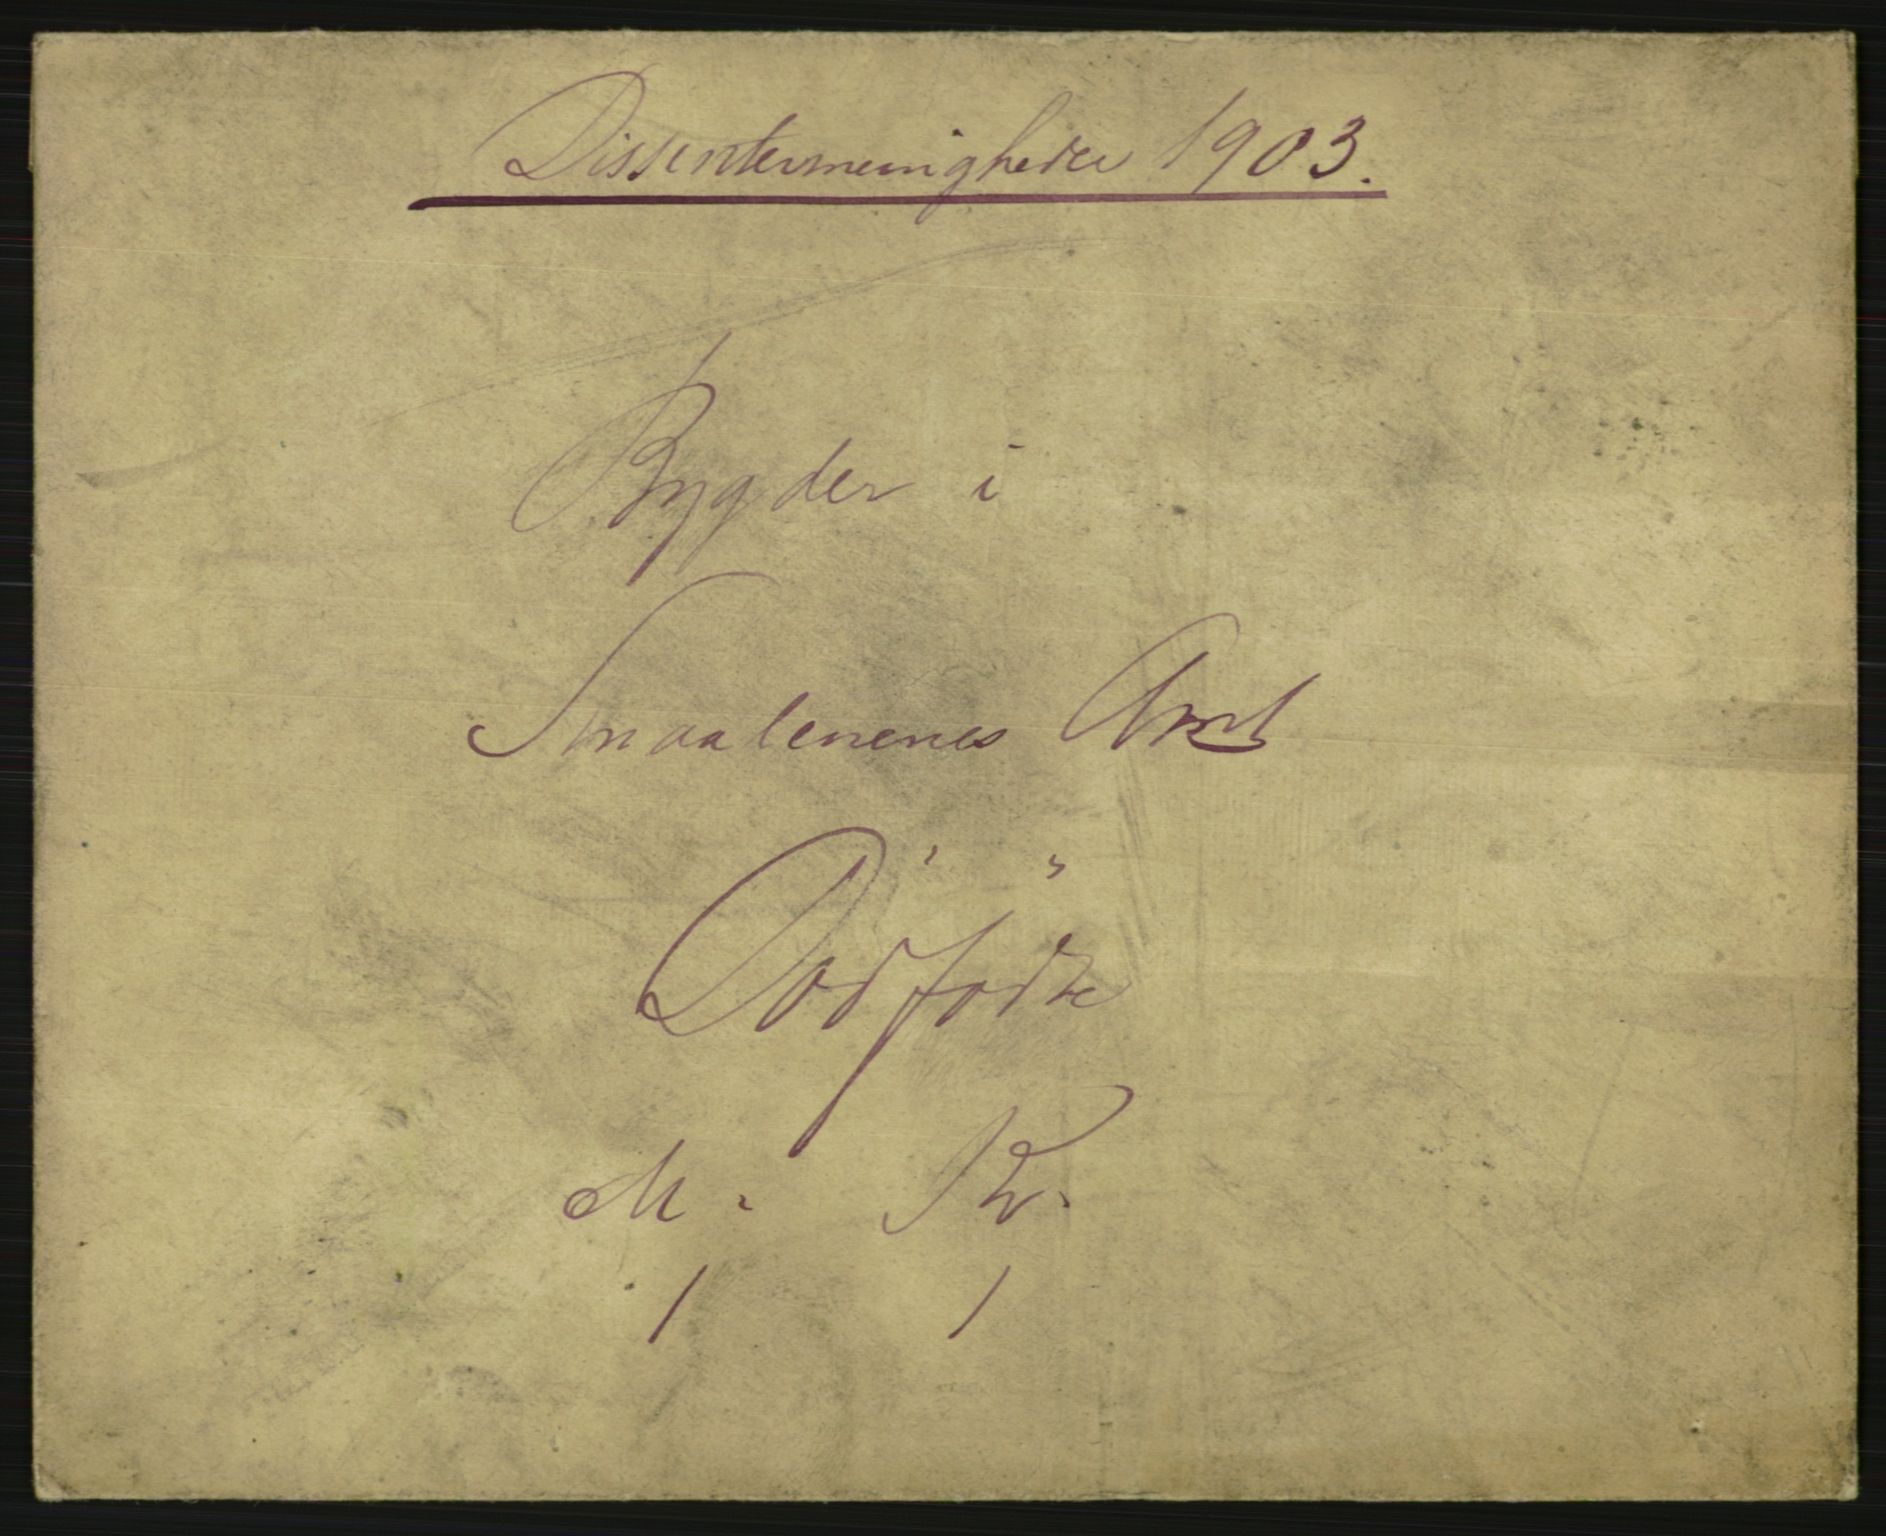 Dissentermenigheder 1903.
Bygder i
Smaalenenes Amt
Dødfødte
M. Kv.
1 1